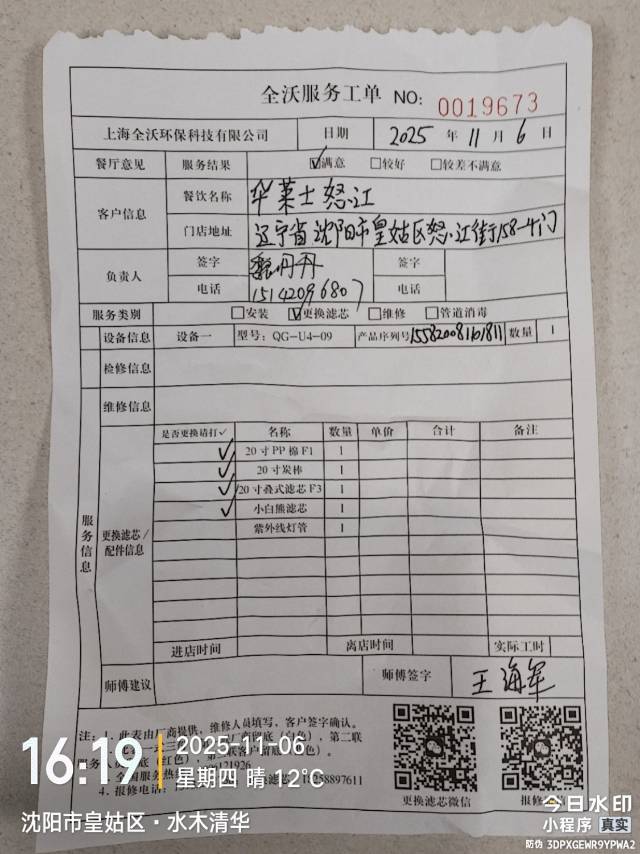 全沃服务工单 NO: 0019673
上海全沃环保科技有限公司 日期 2025 年 11 月 6 日
餐厅意见 服务结果 ☑满意 □较好 □较差不满意
客户信息 餐饮名称 华莱士怒江
门店地址 辽宁省沈阳市皇姑区怒江街158-4门
负责人 签字 魏丹丹 签字
电话 15142096807 电话
服务类别 □安装 ☑更换滤芯 □维修 □管道消毒
设备信息 设备一 型号: QG-U4-09 产品序列号 数量 1
检修信息
维修信息
服务信息
更换滤芯/配件信息
是否更换请打✓ 名称 数量 单价 合计 备注
✓ 20寸PP棉F1 1
✓ 20寸炭棒 1
✓ 20寸叠式滤芯F3 1
✓ 小白熊滤芯 1
紫外线灯管 1
进店时间 离店时间 实际工时
师傅建议 师傅签字 王海军
注: 1、此表由厂商提供，维修人员填写，客户签字确认。
更换滤芯微信 报修微信
16:19 2025-11-06
星期四 晴 12℃
沈阳市皇姑区·水木清华
今日水印
小程序 真实
防伪 3DPXGEWR9YPWA2